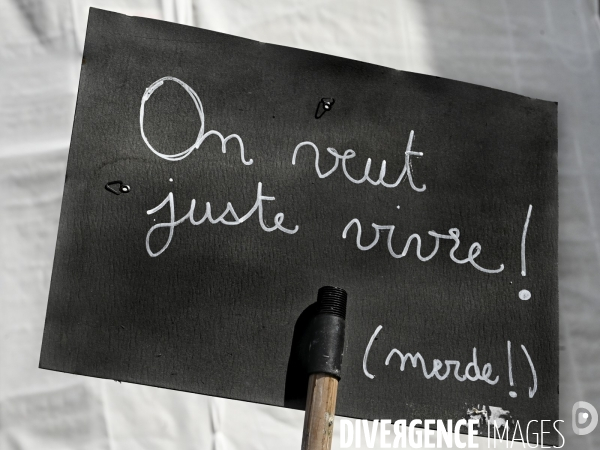 On veut
juste vivre !
(merde !)
DIVERGENCE IMAGES